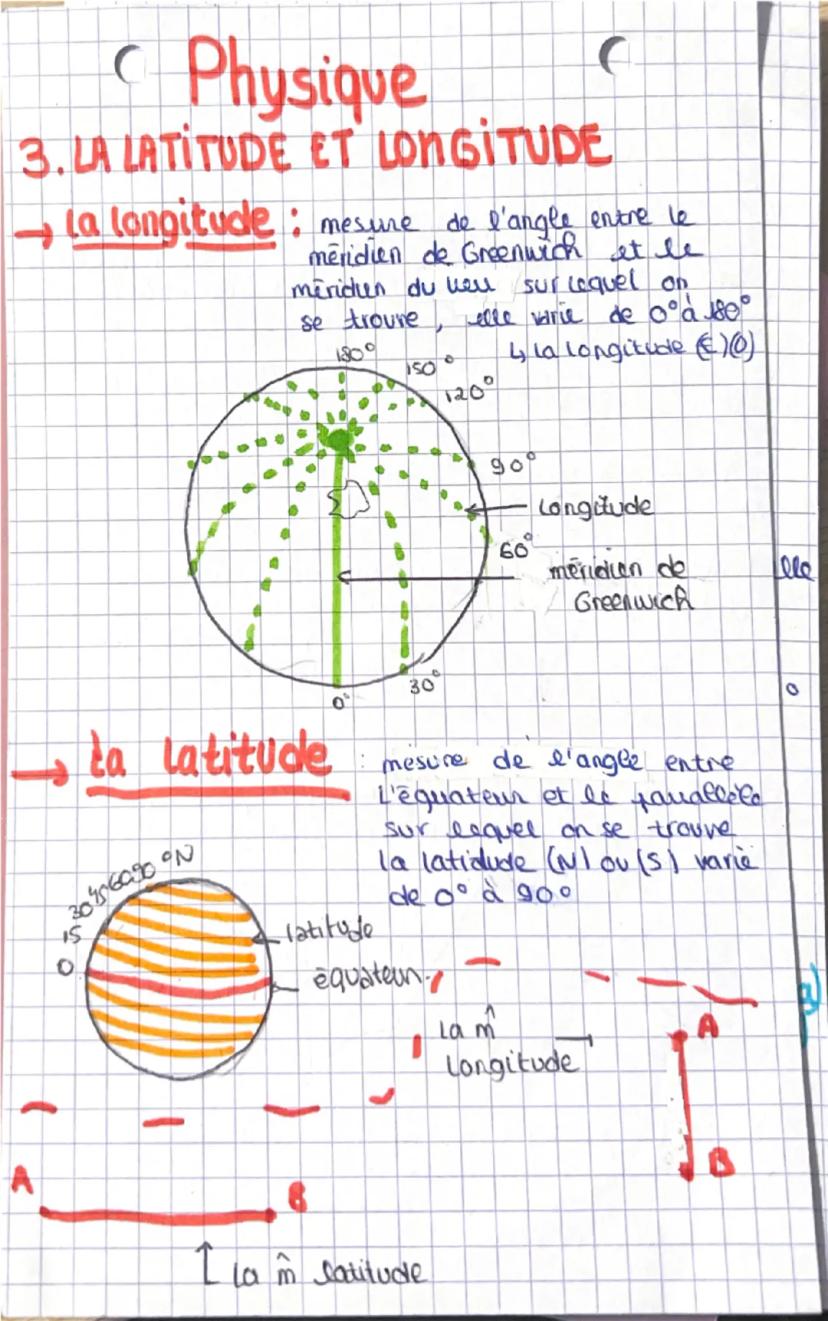 Physique
3. LA LATITUDE ET LONGITUDE
→ la longitude : mesure de l'angle entre le
méridien de Greenwich et le
méridien du lieu sur lequel on
se trouve, elle varie de 0° à 180°
↳ la longitude (E)(O)
180°
150°
120°
90°
← longitude
60°
méridien de
Greenwich
30°
0°
→ La latitude : mesure de l'angle entre
L'équateur et le parallèle
sur lequel on se trouve
la latidude (N) ou (S) varie
de 0° à 90°
0 15 30 45 60 90 °N
latitude
équateur
la m̂
longitude
A
B
A
B
↑ la m̂ latitude
lle
0